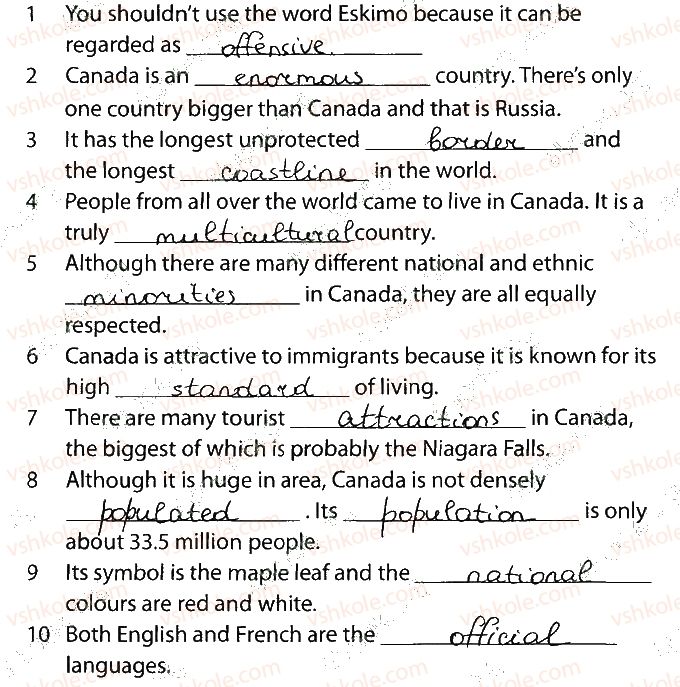 1 You shouldn't use the word Eskimo because it can be
regarded as offensive
2 Canada is an enormous country. There's only
one country bigger than Canada and that is Russia.
3 It has the longest unprotected border and
the longest coastline in the world.
4 People from all over the world came to live in Canada. It is a
truly multicultural country.
5 Although there are many different national and ethnic
minorities in Canada, they are all equally
respected.
6 Canada is attractive to immigrants because it is known for its
high standard of living.
7 There are many tourist attractions in Canada,
the biggest of which is probably the Niagara Falls.
8 Although it is huge in area, Canada is not densely
populated. Its population is only
about 33.5 million people.
9 Its symbol is the maple leaf and the national
colours are red and white.
10 Both English and French are the official
languages.
vshkole.com